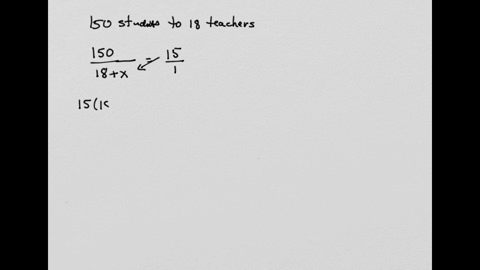 150 students to 18 teachers
150/(18+x) = 15/1
15(18